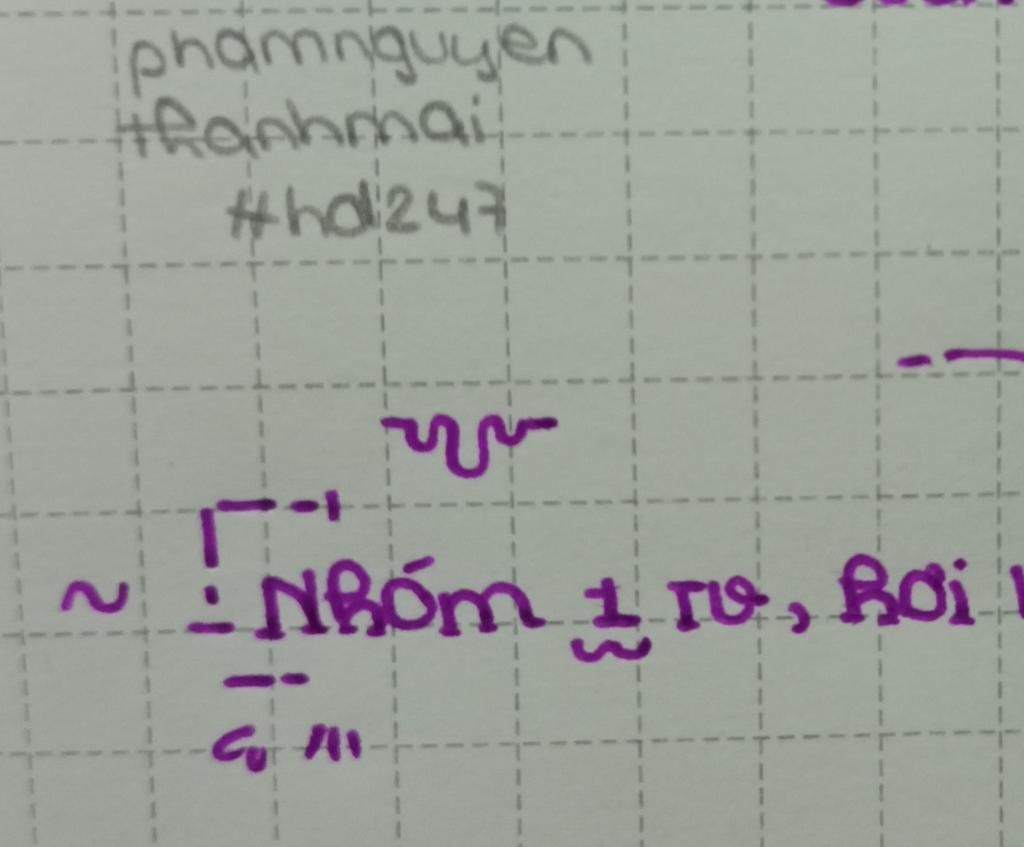 phamnguyen
thanhmai
#hdl247
~ Nhóm 1 TV, hơi